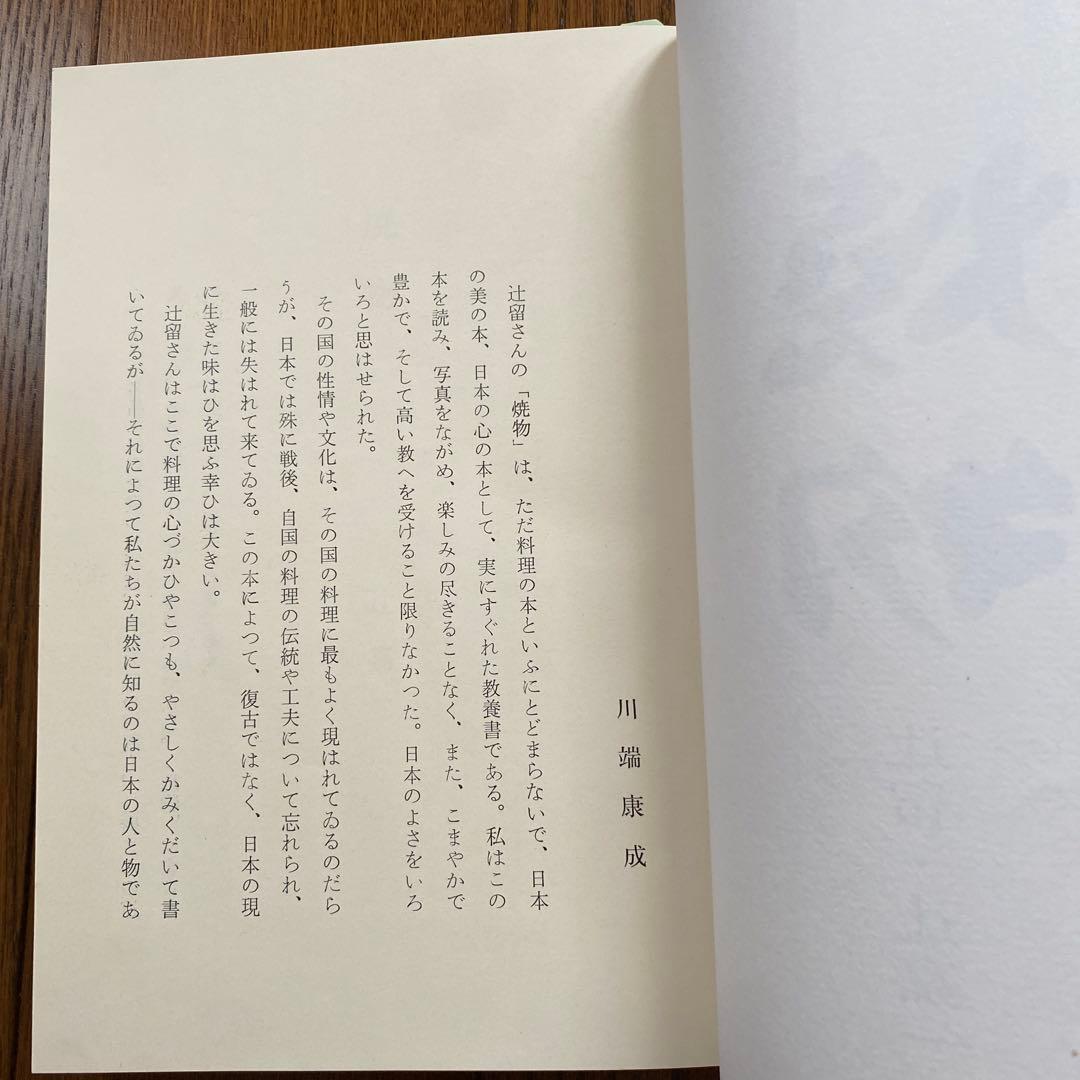 川端康成
辻留さんの「焼物」は、ただ料理の本といふにとどまらないで、日本
の美の本、日本の心の本として、実にすぐれた教養書である。私はこの
本を読み、写真をながめ、楽しみの尽きることなく、また、こまやかで
豊かで、そして高い教へを受けること限りなかつた。日本のよさをいろ
いろと思はせられた。
その国の性情や文化は、その国の料理に最もよく現はれてゐるのだら
うが、日本では殊に戦後、自国の料理の伝統や工夫について忘れられ、
一般には失はれて来てゐる。この本によつて、復古ではなく、日本の現
に生きた味はひを思ふ幸ひは大きい。
辻留さんはここで料理の心づかひやこつも、やさしくかみくだいて書
いてゐるが――それによつて私たちが自然に知るのは日本の人と物であ